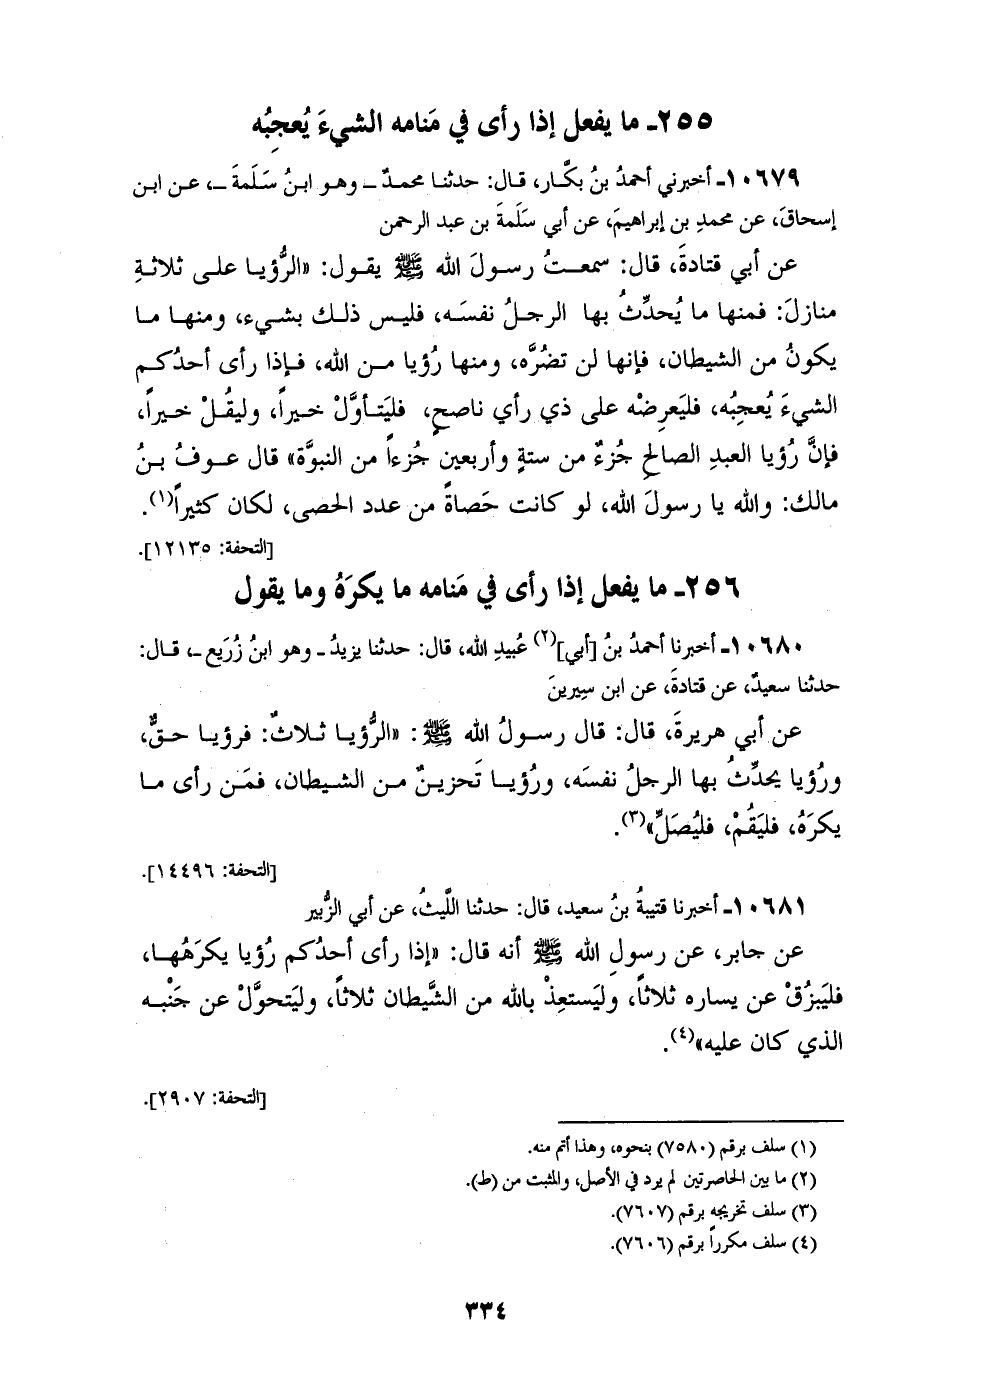 ٢٥٥ـ ما يفعل إذا رأى في مَنامه الشيءَ يُعجِبُه
١٠٦٧٩ـ أخبرني أحمدُ بنُ بكَّار، قال: حدثنا محمدٌ ـ وهو ابنُ سَلَمةَ ـ، عن ابن
إسحاقَ، عن محمدِ بن إبراهيمَ، عن أبي سَلَمةَ بن عبد الرحمن
عن أبي قتادةَ، قال: سمعتُ رسولَ الله ﷺ يقول: «الرُّؤيا على ثلاثةِ
منازلَ: فمنها ما يُحدِّثُ بها الرجلُ نفسَه، فليس ذلك بشيء، ومنها ما
يكونُ من الشيطان، فإنها لن تضُرَّه، ومنها رُؤيا من الله، فإذا رأى أحدُكم
الشيءَ يُعجِبُه، فليَعرِضْه على ذي رأي ناصحٍ، فليَتأوَّلْ خيراً، وليقُلْ خيراً،
فإنَّ رُؤيا العبدِ الصالحِ جُزءٌ من ستةٍ وأربعين جُزءاً من النبوَّة» قال عوفُ بنُ
مالك: والله يا رسولَ الله، لو كانت حَصاةً من عدد الحصى، لكان كثيراً(١).
[التحفة: ١٢١٣٥].
٢٥٦ـ ما يفعل إذا رأى في مَنامه ما يكرَهُ وما يقول
١٠٦٨٠ـ أخبرنا أحمدُ بنُ [أبي](٢) عُبيدِ الله، قال: حدثنا يزيدُ ـ وهو ابنُ زُرَيع ـ، قال:
حدثنا سعيدٌ، عن قتادةَ، عن ابن سِيرينَ
عن أبي هريرةَ، قال: قال رسولُ الله ﷺ: «الرُّؤيا ثلاثٌ: فرؤيا حقٌّ،
ورُؤيا يحدِّثُ بها الرجلُ نفسَه، ورُؤيا تَحزينٌ من الشيطان، فمَن رأى ما
يكرَهُ، فليَقُمْ، فليُصَلِّ»(٣).
[التحفة: ١٤٤٩٦].
١٠٦٨١ـ أخبرنا قتيبةُ بنُ سعيد، قال: حدثنا اللَّيثُ، عن أبي الزُّبير
عن جابر، عن رسولِ الله ﷺ أنه قال: «إذا رأى أحدُكم رُؤيا يكرَهُها،
فليَبزُقْ عن يساره ثلاثاً، وليَستعِذْ بالله من الشَّيطان ثلاثاً، وليَتحوَّلْ عن جَنْبه
الذي كان عليه»(٤).
[التحفة: ٢٩٠٧].
(١) سلف برقم (٧٥٨٠) بنحوه، وهذا أتم منه.
(٢) ما بين الحاصرتين لم يرد في الأصل، والمثبت من (ط).
(٣) سلف تخريجه برقم (٧٦٠٧).
(٤) سلف مكرراً برقم (٧٦٠٦).
٣٣٤